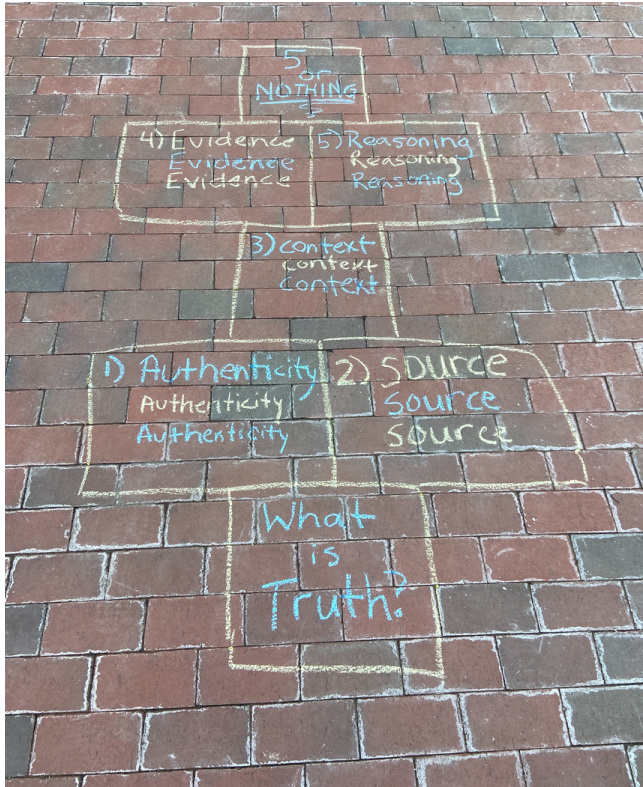 5
or
NOTHING
4) Evidence
Evidence
Evidence
5) Reasoning
Reasoning
Reasoning
3) context
context
context
1) Authenticity
Authenticity
Authenticity
2) Source
Source
Source
What
is
Truth?